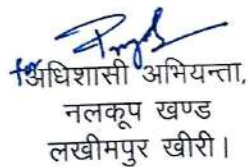 for
अधिशासी अभियन्ता,
नलकूप खण्ड
लखीमपुर खीरी।